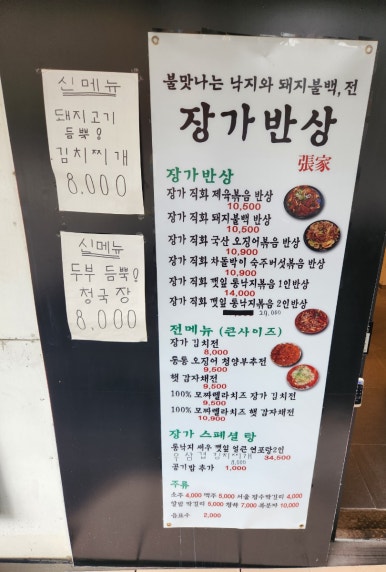 신메뉴
돼지고기
듬뿍!
김치찌개
8,000
신메뉴
두부 듬뿍!
청국장
8,000
불맛나는 낙지와 돼지불백, 전
장가반상
張家
장가반상
장가 직화 제육볶음 반상
10,500
장가 직화 돼지불백 반상
10,500
장가 직화 국산 오징어볶음 반상
10,900
장가 직화 차돌박이 숙주버섯볶음 반상
10,900
장가 직화 깻잎 통낙지볶음 1인반상
14,000
장가 직화 깻잎 통낙지볶음 2인반상
전메뉴 (큰사이즈)
장가 김치전
8,000
통통 오징어 청양부추전
9,500
햇 감자채전
9,500
100% 모짜렐라치즈 장가 김치전
9,500
100% 모짜렐라치즈 햇 감자채전
10,900
장가 스페셜 탕
통낙지 새우 깻잎 얼큰 연포탕2인
34,500
공기밥 추가 1,000
주류
소주 4,000 맥주 5,000 서울 장수막걸리 4,000
알밤 막걸리 5,000 청하 7,000 복분자 10,000
음료수 2,000